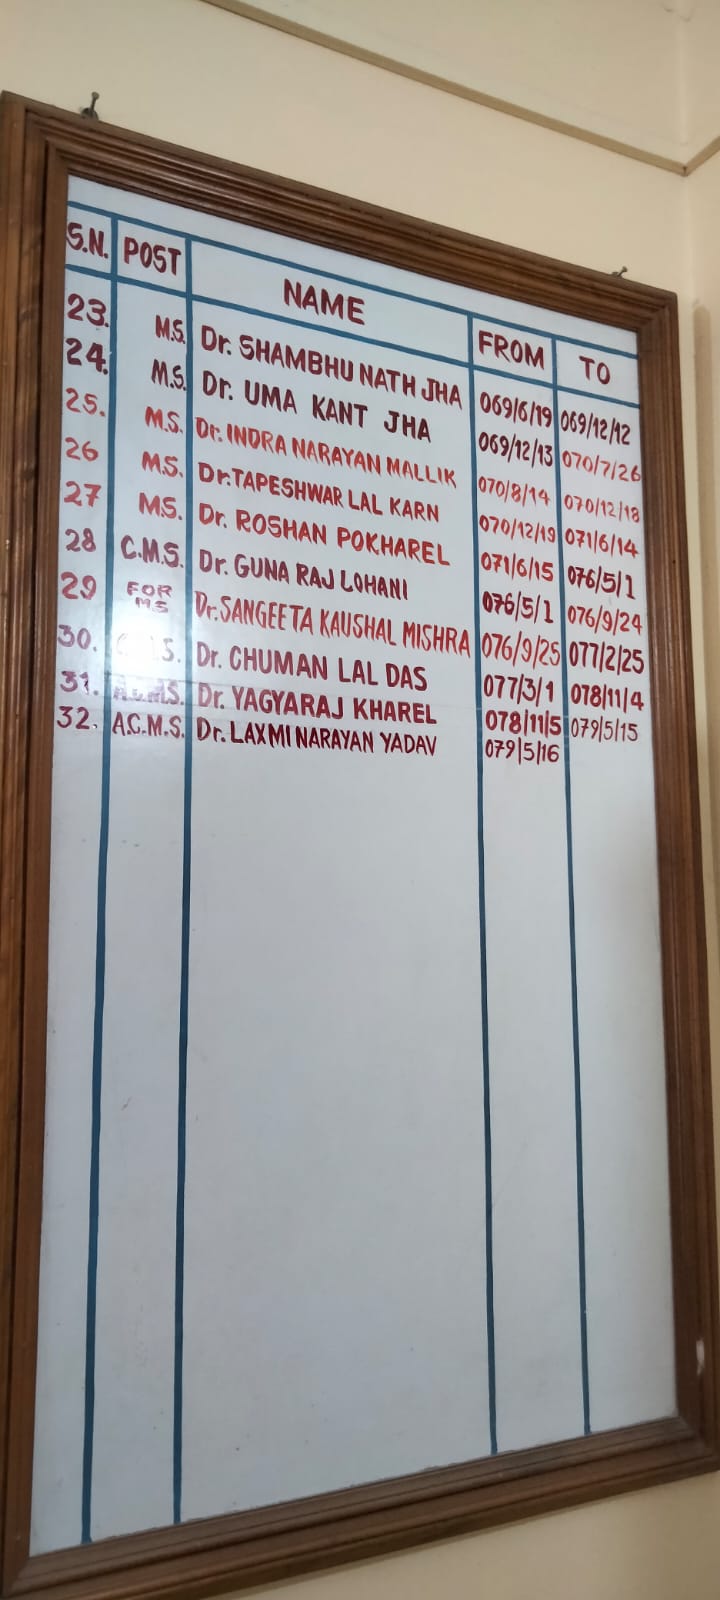 S.N. POST NAME FROM TO
23. M.S. Dr. SHAMBHU NATH JHA 069/6/19 069/12/12
24. M.S. Dr. UMA KANT JHA 069/12/13 070/7/26
25. M.S. Dr. INDRA NARAYAN MALLIK 070/8/14 070/12/18
26 M.S. Dr. TAPESHWAR LAL KARN 070/12/19 071/6/14
27 M.S. Dr. ROSHAN POKHAREL 071/6/15 076/5/1
28 C.M.S. Dr. GUNA RAJ LOHANI 076/5/1 076/9/24
29 FOR MS Dr. SANGEETA KAUSHAL MISHRA 076/9/25 077/2/25
30. Dr. CHUMAN LAL DAS 077/3/1 078/11/4
31. A.C.M.S. Dr. YAGYARAJ KHAREL 078/11/5 079/5/15
32. A.C.M.S. Dr. LAXMI NARAYAN YADAV 079/5/16